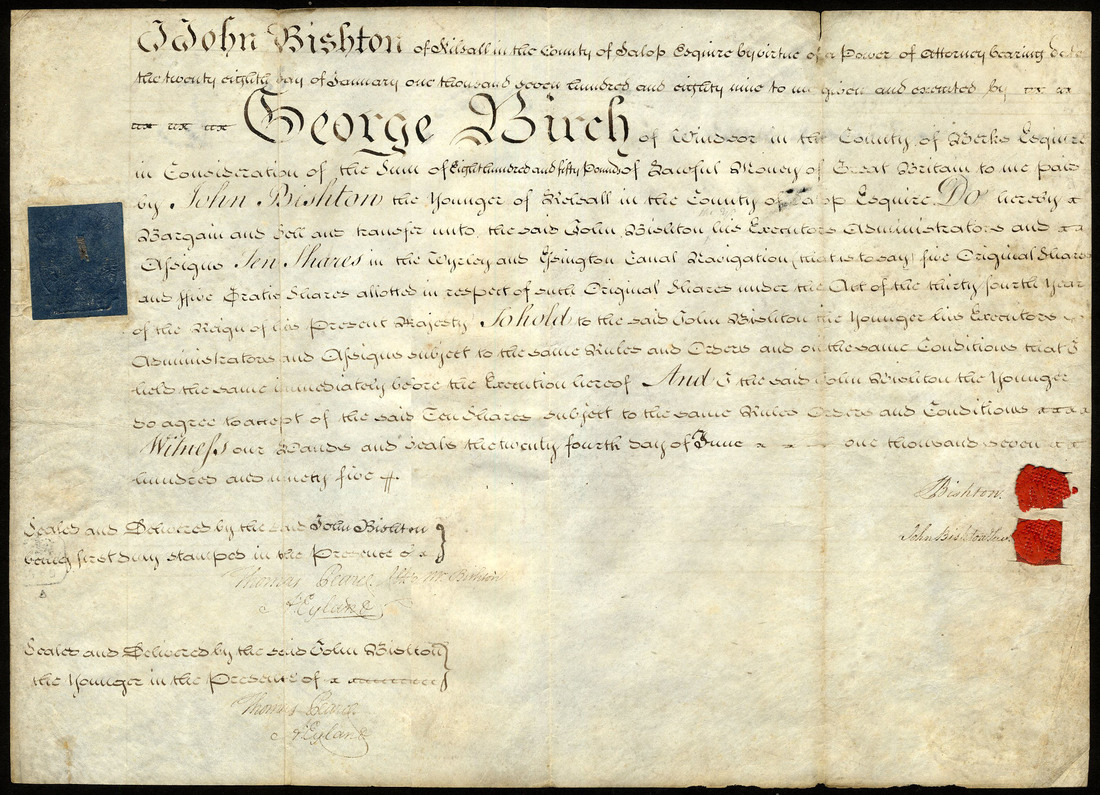 I John Bishton of Kilsall in the County of Salop Esquire by virtue of a Power of Attorney bearing date
the twenty eighth day of January one thousand seven hundred and eighty nine to me given and executed by
George Birch of Windsor in the County of Berks Esquire
in Consideration of the Sum of Eight hundred and fifty Pounds of Lawful Money of Great Britain to me paid
by John Bishton the Younger of in the County of Salop Esquire Do hereby
Bargain and Sell and transfer unto the said John Bishton his Executors Administrators and
Assigns Ten Shares in the Wyrley and Essington Canal Navigation (that is to say) five Original Shares
and five Gratis Shares allotted in respect of such Original Shares under the Act of the thirty fourth Year
of the Reign of his Present Majesty To hold to the said John Bishton the Younger his Executors
Administrators and Assigns subject to the same Rules and Orders and on the same Conditions that I
held the same immediately before the Execution hereof And I the said John Bishton the Younger
do agree to accept of the said Ten Shares subject to the same Rules Orders and Conditions
Witness our Hands and Seals the twenty fourth day of June one thousand seven
hundred and ninety five
Bishton
John Bishton Junr.
Sealed and Delivered by the said John Bishton
being first duly stamped in the Presence of
Thomas Pearce Mr Bishton
Sealed and Delivered by the said John Bishton
the Younger in the Presence of
Thomas Pearce